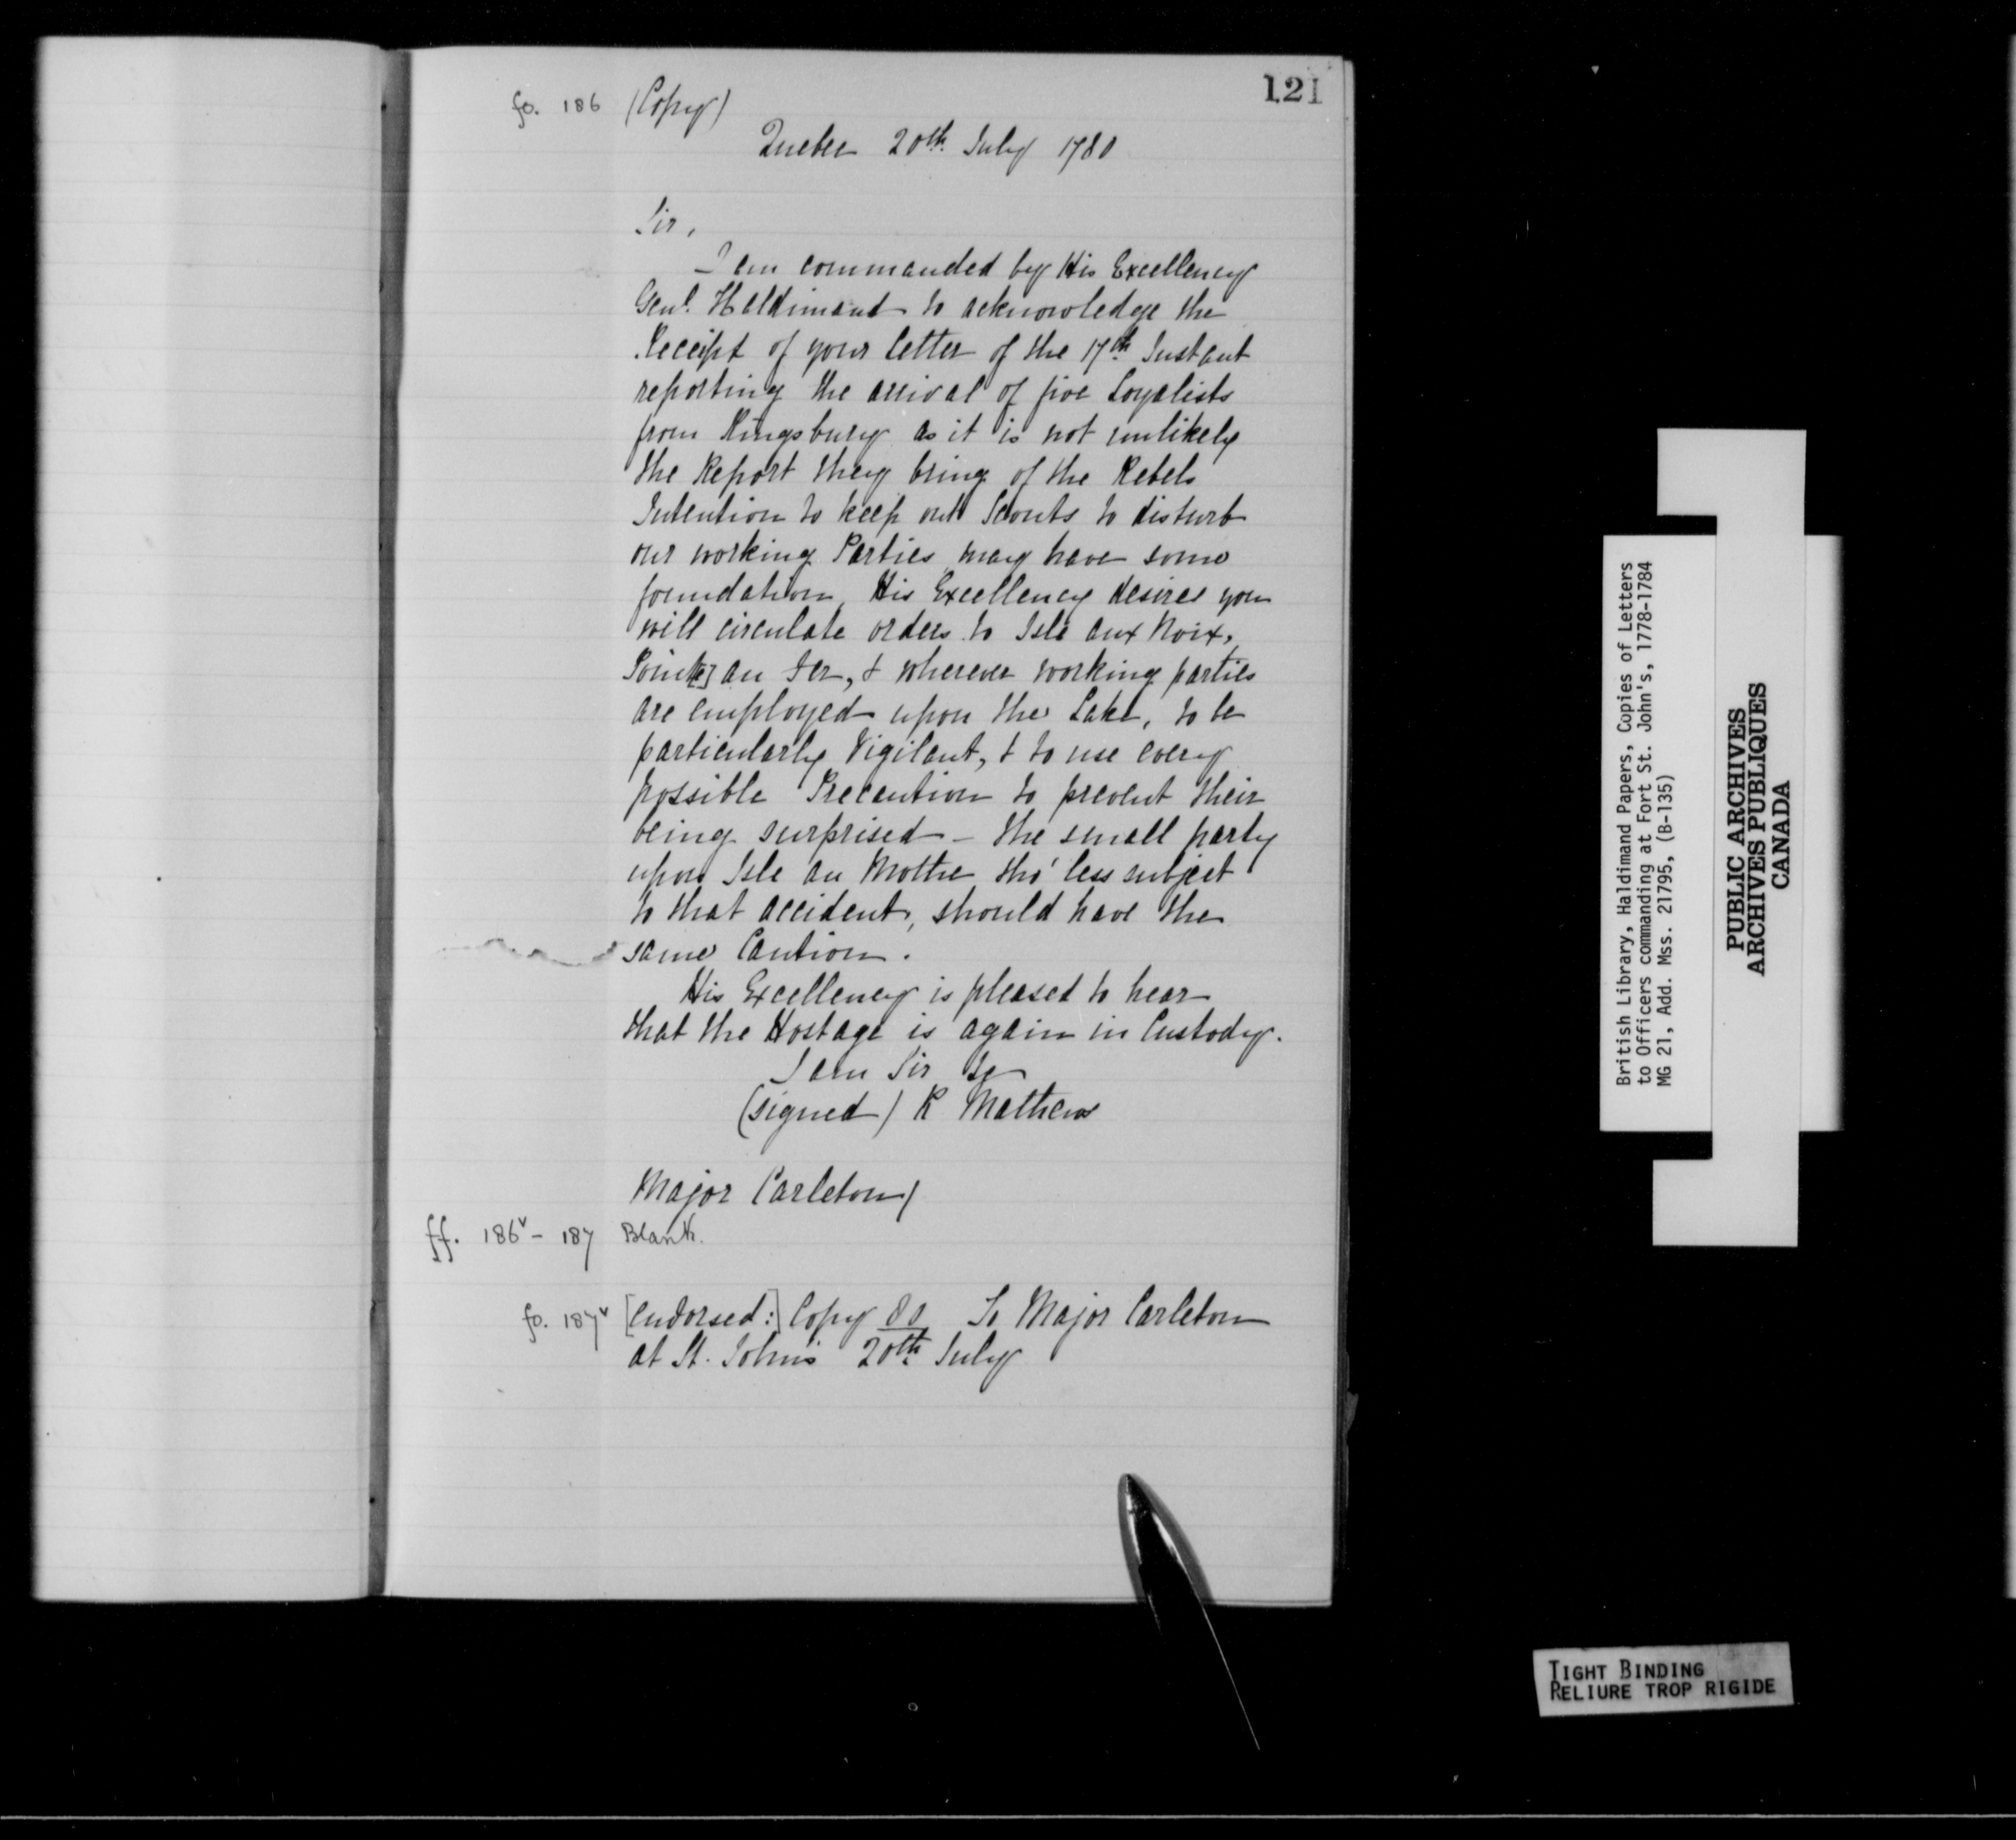 121
fo. 186 (Copy)
Quebec 20th July 1780
Sir,
I am commanded by His Excellency
Genl. Haldimand to acknowledge the
Receipt of your letter of the 17th Instant
reporting the arrival of five Loyalists
from Kingsbury as it is not unlikely
the Report they bring of the Rebels
Intention to keep out Scouts to disturb
our working Parties may have some
foundation, His Excellency desires you
will circulate orders to Isle aux Noix,
Point[e] au Fer, & wherever working parties
are employed upon the Lake, to be
particularly Vigilant, & to use every
possible Precaution to prevent their
being surprised - the small party
upon Isle au Mothe tho' less subject
to that accident, should have the
same Caution.
His Excellency is pleased to hear
that the Hostage is again in Custody.
I am Sir &c
(signed) R Mathews
Major Carleton)
ff. 186v - 187 Blank.
fo. 187v [endorsed:] Copy 80 To Major Carleton
at St. John's 20th July
British Library, Haldimand Papers, Copies of Letters
to Officers commanding at Fort St. John's, 1778-1784
MG 21, Add. Mss. 21795, (B-135)
PUBLIC ARCHIVES
ARCHIVES PUBLIQUES
CANADA
TIGHT BINDING
RELIURE TROP RIGIDE